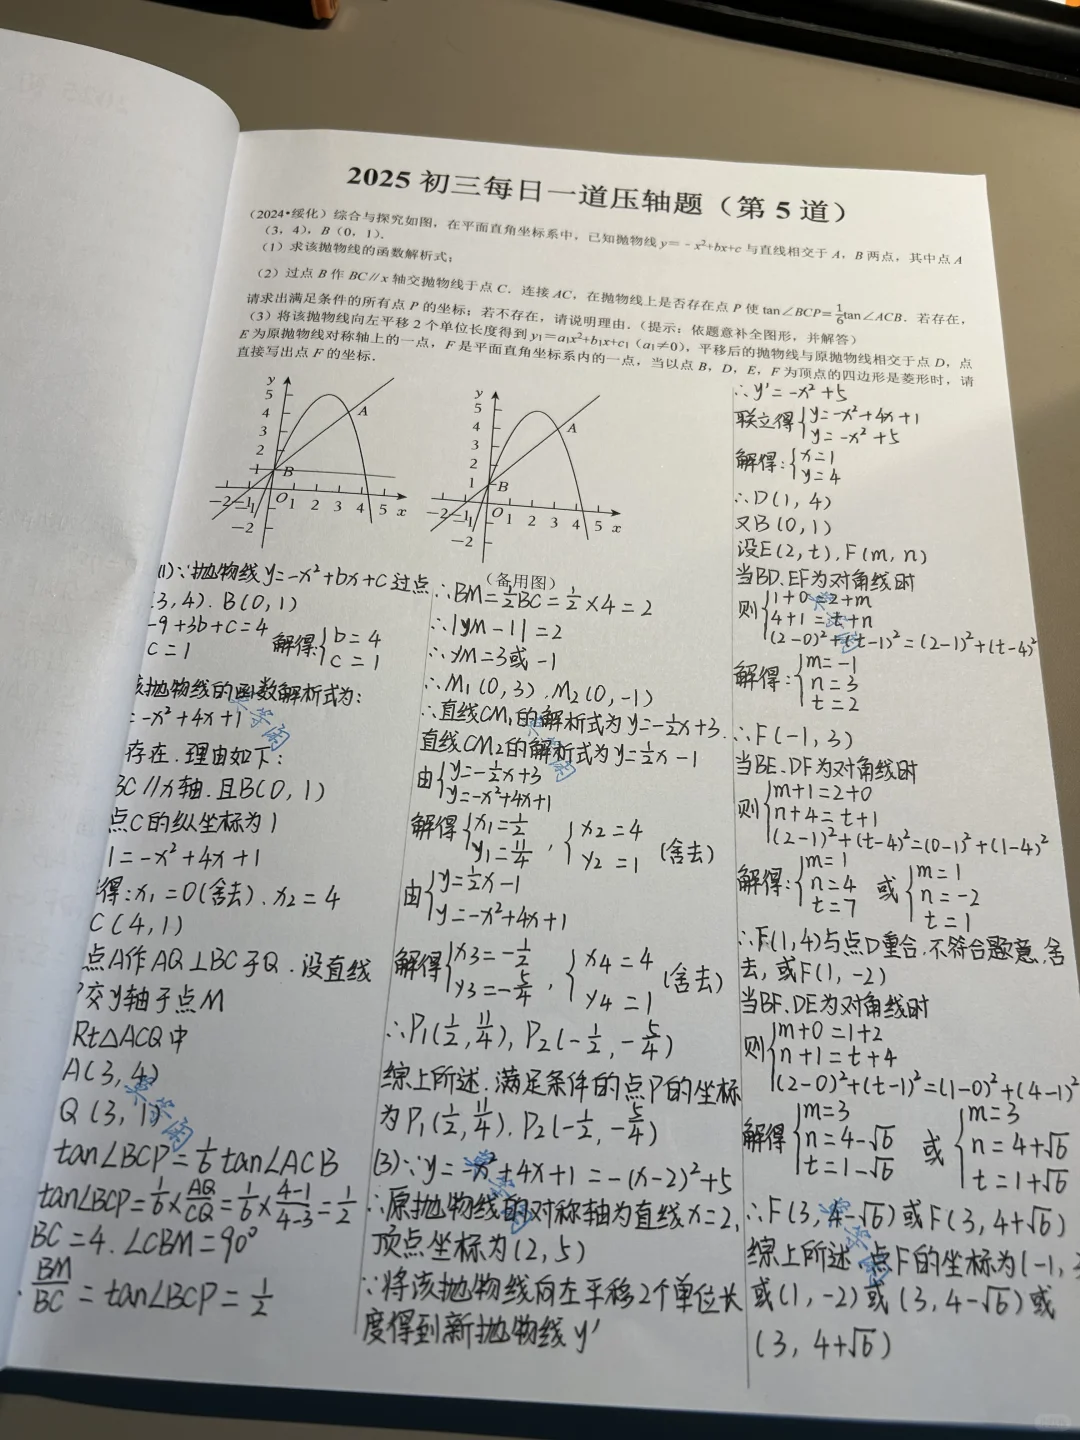 2025 初三每日一道压轴题（第 5 道）
（2024•绥化）综合与探究如图，在平面直角坐标系中，已知抛物线 y=﹣x²+bx+c 与直线相交于 A，B 两点，其中点 A
（3，4），B（0，1）.
（1）求该抛物线的函数解析式；
（2）过点 B 作 BC∥x 轴交抛物线于点 C．连接 AC，在抛物线上是否存在点 P 使 tan∠BCP=1/6tan∠ACB．若存在，
请求出满足条件的所有点 P 的坐标；若不存在，请说明理由．（提示：依题意补全图形，并解答）
（3）将该抛物线向左平移 2 个单位长度得到 y₁=a₁x²+b₁x+c₁（a₁≠0），平移后的抛物线与原抛物线相交于点 D，点
E 为原抛物线对称轴上的一点，F 是平面直角坐标系内的一点，当以点 B，D，E，F 为顶点的四边形是菱形时，请
直接写出点 F 的坐标．
y
5
4
3
2
1
A
B
−2
−1
O
1
2
3
4
5
x
−1
−2
y
5
4
3
2
1
A
B
−2
−1
O
1
2
3
4
5
x
−1
−2
（备用图）
(1)∵抛物线y=-x²+bx+c过点
(3,4). B(0,1)
-9+3b+c=4
c=1
解得:{b=4
c=1
该抛物线的函数解析式为:
=-x²+4x+1
存在.理由如下:
BC//x轴.且B(0,1)
点C的纵坐标为1
1=-x²+4x+1
得:x₁=0(舍去).x₂=4
C(4,1)
点A作AQ⊥BC于Q.设直线
P交y轴于点M
Rt△ACQ中
A(3,4)
Q(3,1)
tan∠BCP=1/6tan∠ACB
tan∠BCP=1/6×AQ/CQ=1/6×(4-1)/(4-3)=1/2
BC=4.∠CBM=90°
BM/BC=tan∠BCP=1/2
∴BM=1/2BC=1/2×4=2
∴|yM-1|=2
∴yM=3或-1
∴M₁(0,3).M₂(0,-1)
∴直线CM₁的解析式为y=-1/2x+3.
直线CM₂的解析式为y=1/2x-1
由{y=-1/2x+3
y=-x²+4x+1
解得{x₁=1/2
y₁=11/4
,{x₂=4
y₂=1
(舍去)
由{y=1/2x-1
y=-x²+4x+1
解得{x₃=-1/2
y₃=-5/4
,{x₄=4
y₄=1
(舍去)
∴P₁(1/2,11/4),P₂(-1/2,-5/4)
综上所述.满足条件的点P的坐标
为P₁(1/2,11/4).P₂(-1/2,-5/4)
(3)∵y=-x²+4x+1=-(x-2)²+5
∴原抛物线的对称轴为直线x=2,
顶点坐标为(2,5)
∵将该抛物线向左平移2个单位长
度得到新抛物线y'
∴y'=-x²+5
联立得{y=-x²+4x+1
y=-x²+5
解得:{x=1
y=4
∴D(1,4)
又B(0,1)
设E(2,t).F(m,n)
当BD.EF为对角线时
则{1+0=2+m
4+1=t+n
(2-0)²+(t-1)²=(2-1)²+(t-4)²
解得:{m=-1
n=3
t=2
∴F(-1,3)
当BE.DF为对角线时
则{m+1=2+0
n+4=t+1
(2-1)²+(t-4)²=(0-1)²+(1-4)²
解得:{m=1
n=4
t=7
或{m=1
n=-2
t=1
∴F(1,4)与点D重合.不符合题意,舍
去,或F(1,-2)
当BF.DE为对角线时
则{m+0=1+2
n+1=t+4
(2-0)²+(t-1)²=(1-0)²+(4-1)²
解得{m=3
n=4-√6
t=1-√6
或{m=3
n=4+√6
t=1+√6
∴F(3,4-√6)或F(3,4+√6)
综上所述.点F的坐标为(-1,3
或(1,-2)或(3,4-√6)或
(3,4+√6)